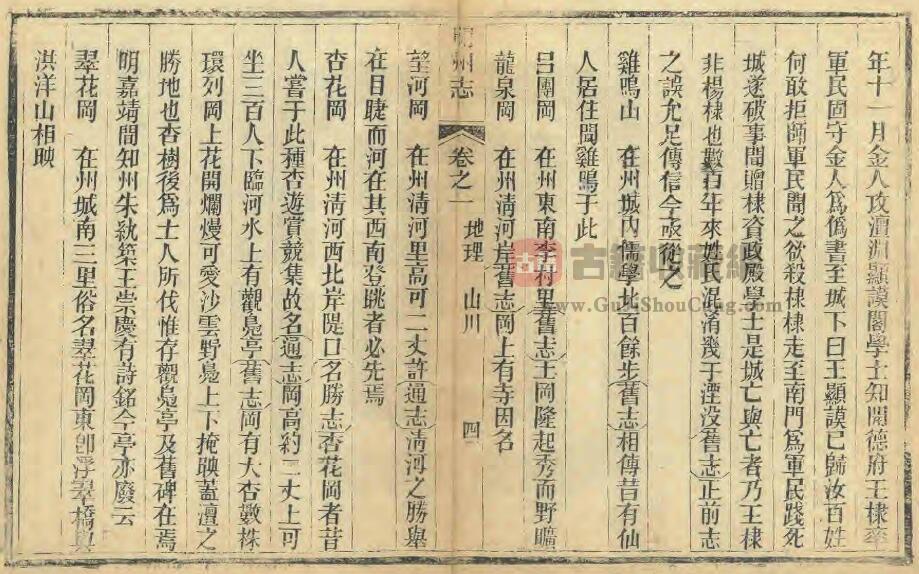 年十一月金人攻澶淵顯謨閣學士知開德府王棣率
軍民固守金人爲僞書至城下曰王顯謨已歸汝百姓
何敢拒師軍民聞之欲殺棣棣走至南門爲軍民踐死
城遂破事聞贈棣資政殿學士是城亡與亡者乃王棣
非楊棣也數百年來姓氏混淆幾于湮没舊志正前志
之誤尤足傳信今亟從之
雞鳴山 在州城内儒學北百餘步舊志相傳昔有仙
人居住聞雞鳴于此
呂團岡 在州東南李村里舊志王岡隆起秀而野曠
龍泉岡 在州清河岸舊志岡上有寺因名
州志 卷之一 地理 山川 四
望河岡 在州清河里高可二丈許通志清河之勝舉
在目睫而河在其西南登眺者必先焉
杏花岡 在州清河西北岸隄口名勝志杏花岡者昔
人嘗于此種杏遊賞競集故名通志岡高約二丈上可
坐三百人下臨河水上有觀鳧亭舊志岡有大杏數株
環列岡上花開爛熳可愛沙雲野鳧上下掩映蓋澶之
勝地也杏樹後爲士人所伐惟存觀鳧亭及舊碑在焉
明嘉靖間知州朱紈築王崇慶有詩銘今亭亦廢云
翠花岡 在州城南三里俗名翠花岡東卽浮翠橋與
洪洋山相映
古籍收藏網
www.GuJiShouCang.com